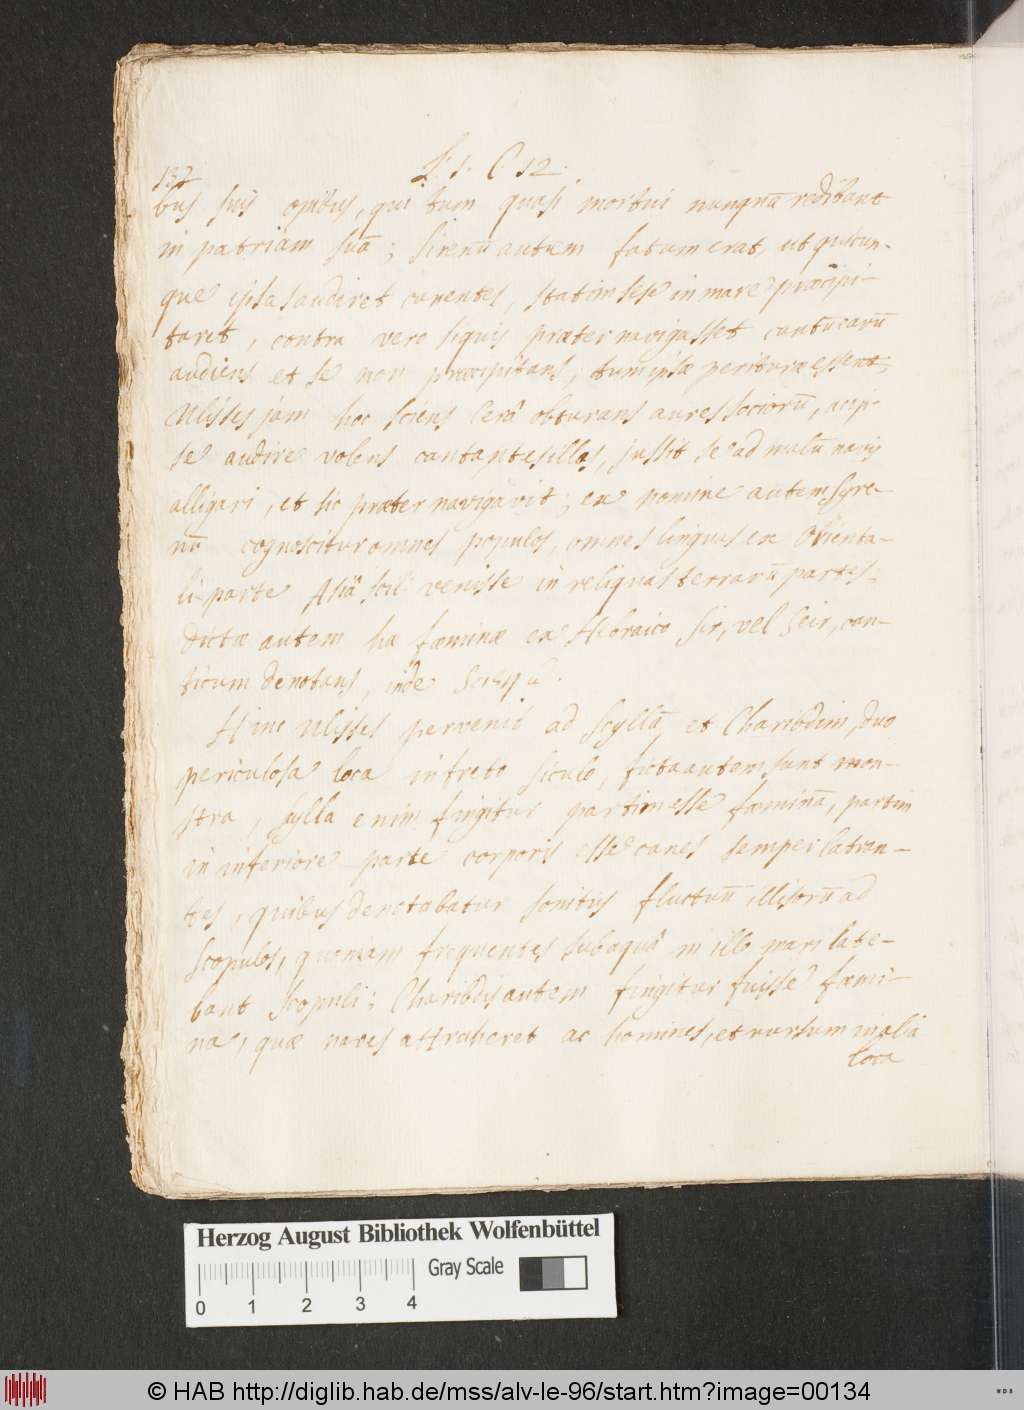 132
L. 1. C 12.
bus suis opibus, qui tum quasi mortui nunquā redibant
in patriam suā; Sirenū autem fatum erat, ut quicun-
que ipsas audiret canentes, statim sese in mare præcipi-
taret, contra vero siquis præternavigasset cantū earū
audiens et se non præcipitans, tum ipsæ perituræ essent,
Ulisses jam hoc sciens cerâ obturans aures sociorū, at ip-
se audire volens cantantes illas, jussit se ad malū navis
alligari, et sic præternavigavit; ex nomine autem Syre-
nū cognoscitur omnes populos, omnes linguas ex Orienta-
li parte Asiâ scil. venisse in reliquas terrarū partes;
dictæ autem hæ fæminæ ex Hebraico Sir, vel Seir, can-
ticum denotans, inde
Hinc Ulisses pervenit ad Scyllā et Charibdim, duo
periculosa loca in freto siculo, ficta autem sunt mon-
stra, Scylla enim fingitur partim esse fæminā, partim
in inferiore parte corporis esse canes semper latran-
tes, quibus denotabatur sonitus fluctuū illisorū ad
scopulos, quoniam frequentes sub aquâ in illo mari late-
bant scopuli; Charibdis autem fingitur fuisse fæmi-
na, quæ naves attraheret ac homines, et rursum in alia
loca
Herzog August Bibliothek Wolfenbüttel
0 1 2 3 4 Gray Scale
© HAB http://diglib.hab.de/mss/alv-le-96/start.htm?image=00134